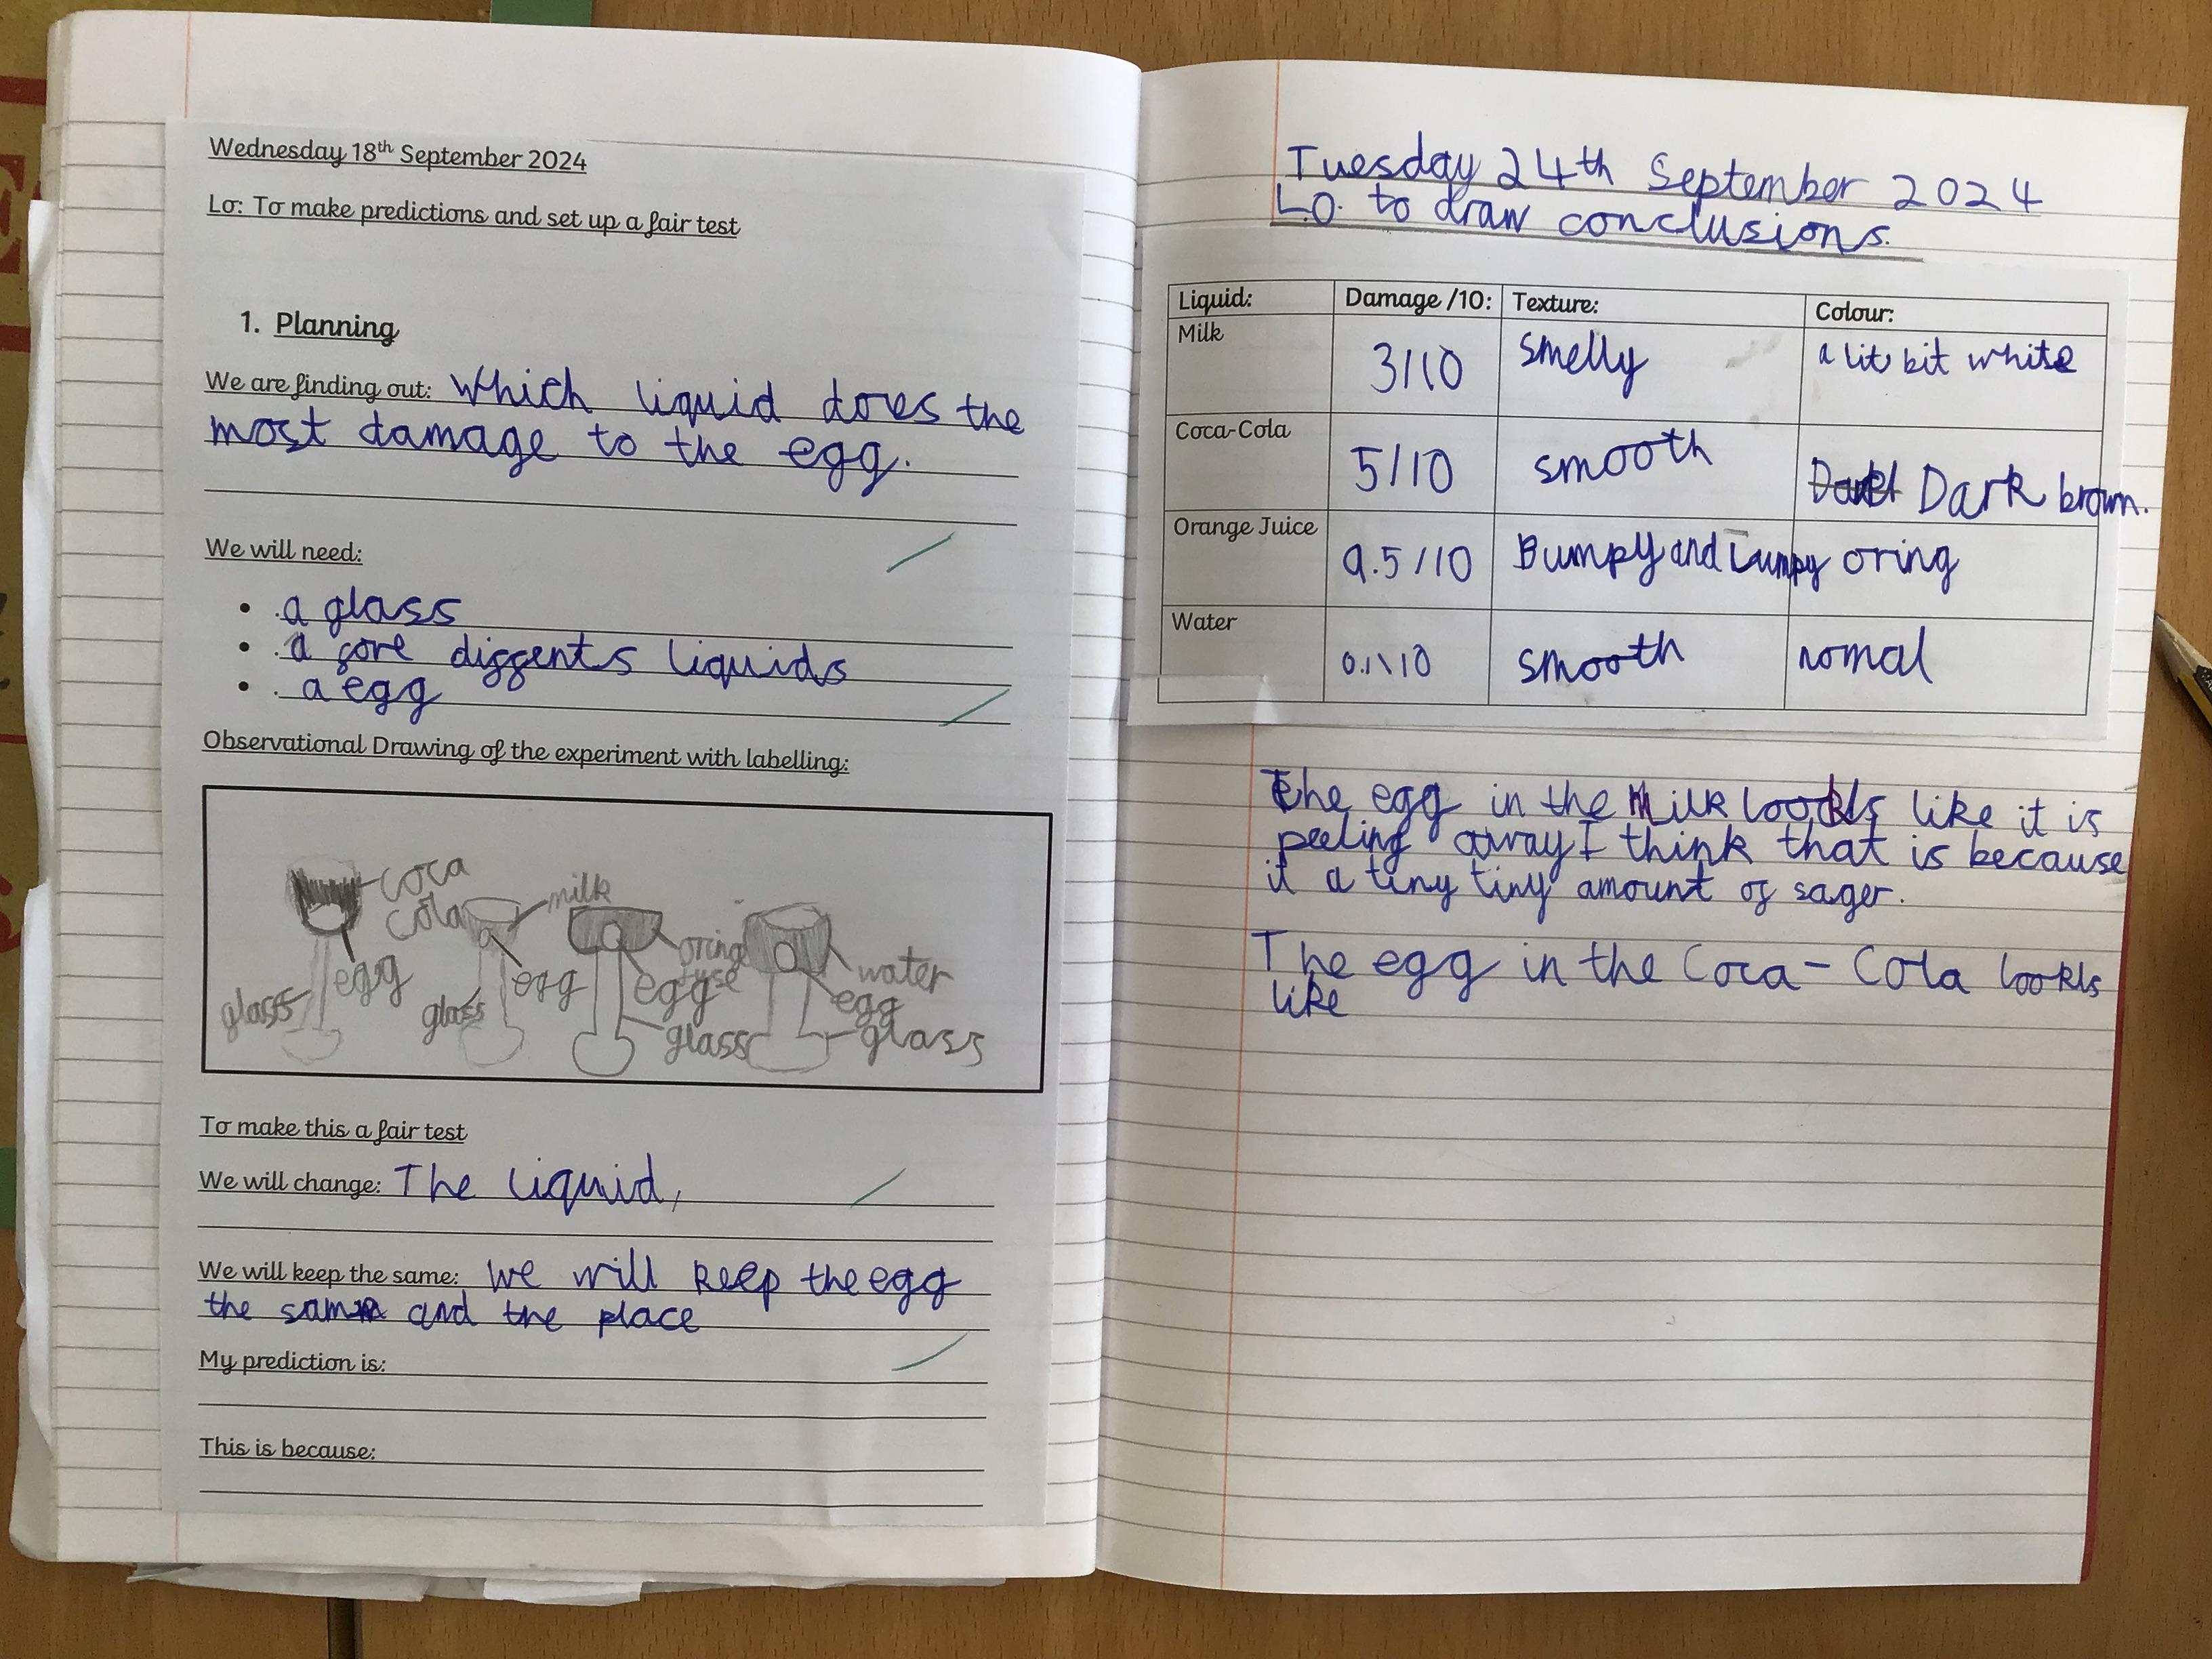 Wednesday 18th September 2024
Lo: To make predictions and set up a fair test
1. Planning
We are finding out: Which liquid does the
most damage to the egg.
We will need:
• a glass
• a fore diffents liquids
• a egg
Observational Drawing of the experiment with labelling:
coca
cola
milk
oring
juse
water
egg
egg
egg
egg
glass
glass
glass
glass
To make this a fair test
We will change: The liquid,
We will keep the same: we will keep the egg
the same and the place
My prediction is:
This is because:
Tuesday 24th September 2024
L.O. to draw conclusions.
Liquid: Damage /10: Texture: Colour:
Milk 3/10 smelly a lit bit white
Coca-Cola 5/10 smooth Dark brown.
Orange Juice 9.5/10 Bumpy and Lumpy oring
Water 0.1\10 smooth nomal
The egg in the Milk lookls like it is
peeling away I think that is because
it a tiny tiny amount of sager.
The egg in the Coca-Cola lookls
like